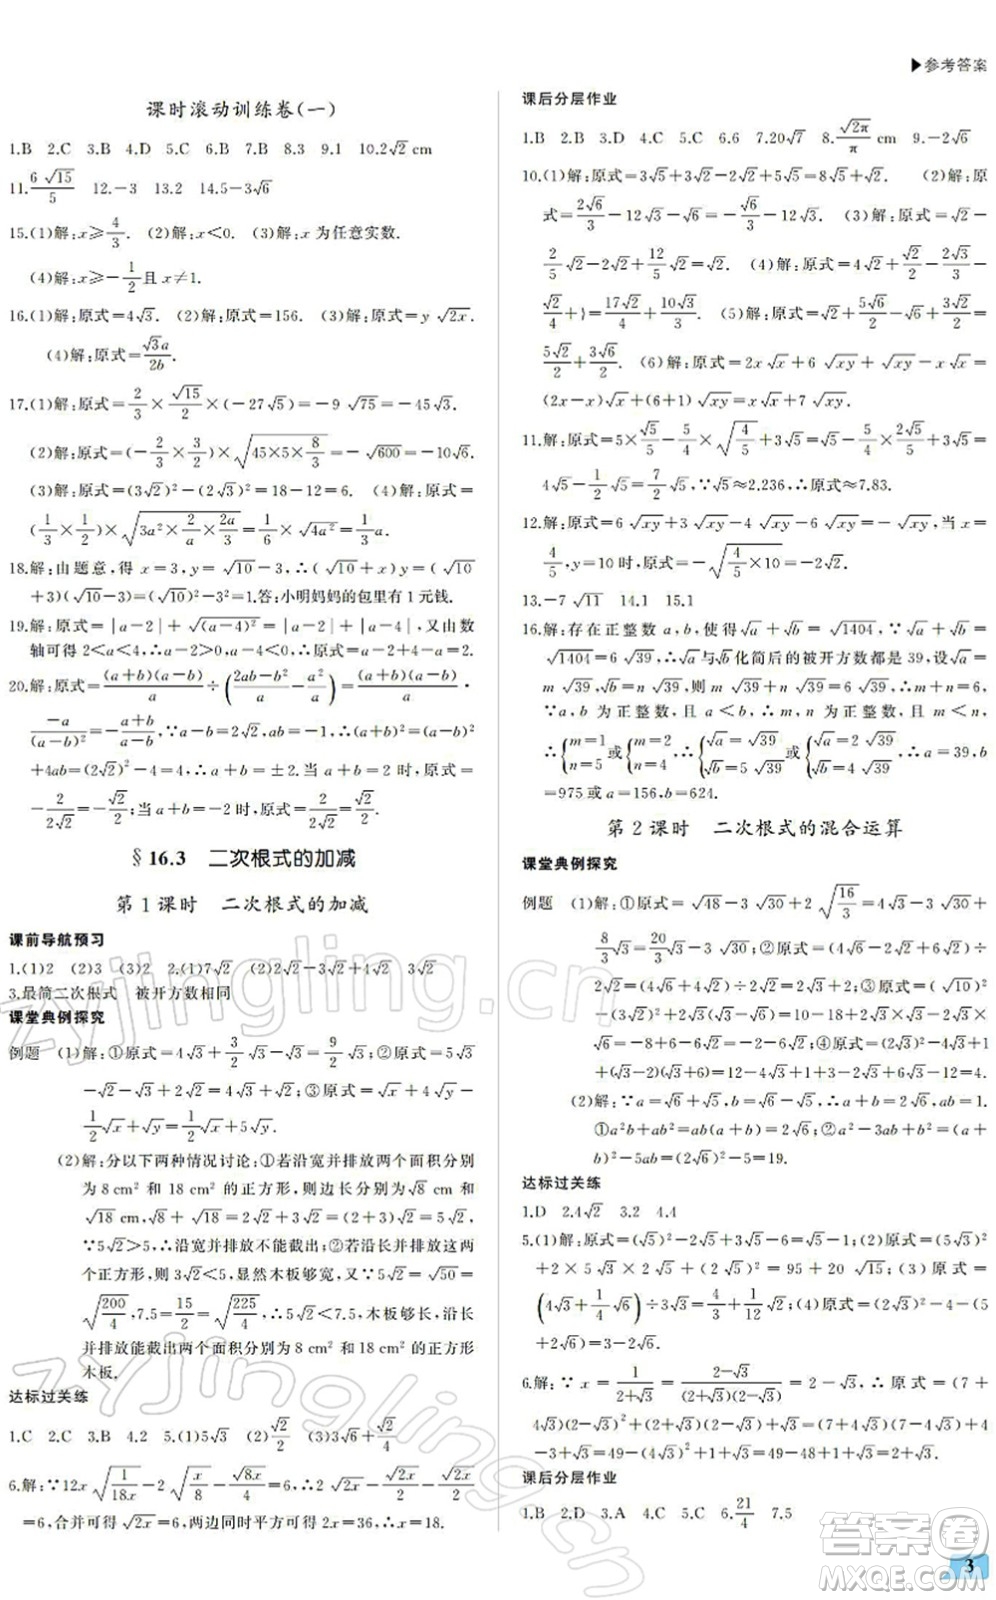 ▶参考答案
课时滚动训练卷(一)
1.B 2.C 3.B 4.D 5.C 6.B 7.B 8.3 9.1 10.2√2 cm
11.6√15/5 12.-3 13.2 14.5-3√6
15.(1)解:x≥4/3. (2)解:x<0. (3)解:x 为任意实数.
(4)解:x≥-1/2且 x≠1.
16.(1)解:原式=4√3. (2)解:原式=156. (3)解:原式=y√2x.
(4)解:原式=√3a/2b.
17.(1)解:原式=2/3×√15/2×(-27√5)=-9√75=-45√3.
(2)解:原式=(-2/3×3/2)×√(45×5×8/3)=-√600=-10√6.
(3)解:原式=(3√2)²-(2√3)²=18-12=6. (4)解:原式=
(1/3×1/2)×√(3a²×2/a×2a/3)=1/6×√4a²=1/3a.
18.解:由题意,得 x=3,y=√10-3,∴(√10+x)y=(√10
+3)(√10-3)=(√10)²-3²=1.答:小明妈妈的包里有1元钱.
19.解:原式=|a-2|+√(a-4)²=|a-2|+|a-4|,又由数
轴可得 2<a<4,∴原式=a-2+4-a=2.
20.解:原式=(a+b)(a-b)/a÷(2ab-b²/a-a²/a)=(a+b)(a-b)/a·
-a/(a-b)²=-a+b/a-b.∵a-b=2√2,ab=-1,∴(a+b)²=(a-b)²
+4ab=(2√2)²-4=4,∴a+b=±2.当 a+b=2 时,原式=
-2/2√2=-√2/2;当 a+b=-2 时,原式=-(-2/2√2)=√2/2.
§16.3 二次根式的加减
第1课时 二次根式的加减
课前导航预习
1.(1)2 (2)3 (3)2 2.(1)7√2 (2)2√2-3√2+4√2 3√2
3.最简二次根式 被开方数相同
课堂典例探究
例题 (1)解:①原式=4√3+3/2√3=9/2√3;②原式=5√3
-√2-√3+2√2=4√3+√2;③原式=√x+4√y-
1/2√x+√y=1/2√x+5√y.
(2)解:分以下两种情况讨论:①若沿宽并排放两个面积分别
为 8 cm² 和 18 cm² 的正方形,则边长分别为√8 cm 和
√18 cm,√8+√18=2√2+3√2=(2+3)√2=5√2.
∵5√2>5,∴沿宽并排放不能截出;②若沿长并排放,
∵18<25,∴3√2<5,显然木板够宽,∵5√2=√50=
√(200/4),7.5=15/2=√(225/4),∴5√2<7.5,木板够长,沿长
并排放能截出两个面积分别为 8 cm² 和 18 cm² 的正方形
木板.
达标过关练
1.C 2.C 3.B 4.2 5.(1)5√3 (2)√2/2 (3)3√6+√2
6.解:∵12x√(1/18x)-2√(x/8)+√8x/4=6,∴2√2x-√2x/2+√2x/2
=6,合并可得√2x=6,两边同时平方可得 2x=36,∴x=18.
课后分层作业
1.B 2.B 3.D 4.C 5.C 6.6 7.20√7 8.√2π/π 9.-2√6
10.(1)解:原式=3√5+3√2-2√2+5√5=8√5+√2. (2)解:原
式=2√6/3-12√3-√6=-√6/3-12√3. (3)解:原式=√2-
2/5√2-2√2+12/5√2=√2. (4)解:原式=4√2+√2/4-2√3/3+
√2/4+ =17√2/4+√3/4. (5)解:原式=√2+5√6/2-√6+3√2/2=
5√2/2+3√6/2. (6)解:原式=2x√x+6√xy+√xy-x√x=
(2x-x)√x+(6+1)√xy=x√x+7√xy.
11.解:原式=5×√5/5-5/4×√(4/5)+3√5=√5-5/4×2√5/5+3√5=
4√5-1/2√5=7/2√5,∵√5≈2.236,∴原式≈7.83.
12.解:原式=6√xy+3√xy-4√xy-6√xy=-√xy,当 x=
4/5,y=10 时,原式=-√(4/5×10)=-2√2.
13.-7√11 14.1 15.1
16.解:存在正整数 a,b,使得√a+√b=√1404,∵
√1404=6√39,∴√a与√b化简后的被开方数都是 39,设√a=
m√39,√b=n√39,∴m√39+n√39=6√39,∴m+n=6,
∵a,b 为正整数,且 a<b,∴m,n 为正整数,且 m<n,
∴{m=1 n=5 或{m=2 n=4 ∴{√a=√39 √b=5√39 或{√a=2√39 √b=4√39 ∴a=39,b
=975 或 a=156,b=624.
第2课时 二次根式的混合运算
课堂典例探究
例题 (1)解:①原式=√48-3√30+2√(16/3)=4√3-3√30+
8/3√3=20/3√3-3√30;②原式=(4√2-2√2+6√2)÷
2√2=8√2÷2√2=4;③原式=(√10)²-
(3√2)²+2√3=10-18+2√3=-8+2√3;④原式=
(2√3)²-2×2√3×√6+(√6)²+12√2=12-12√2+6+12√2=18.
(2)解:∵a=√6+√5,b=√6-√5,∴a+b=2√6,ab=1.
①a²b+ab²=ab(a+b)=2√6;②a²-3ab+b²=(a+
b)²-5ab=(2√6)²-5=19.
达标过关练
1.D 2.4√2 3.2 4.4
5.(1)解:原式=(√5)²-2√5+3√5-6=√5-1;(2)原式=(5√3)²
+2×5√3×2√5+(2√5)²=95+20√15;(3)原式=
(4√3+1/4√6)÷3√3=4/3+1/12√2;(4)原式=(2√3)²-(3
√2+√6)(3√2-√6)=3-2√6.
6.解:∵x=1/(2+√3)=(2-√3)/(2+√3)(2-√3)=2-√3,∴原式=(7+
4√3)(2-√3)²+(2+√3)(2-√3)+√3=(7+4√3)(7-4√3)+4
-3+√3=49-(4√3)²+1+√3=49-48+1+√3=2+√3.
课后分层作业
1.B 2.D 3.A 4.C 5.B 6.21/4 7.5
3